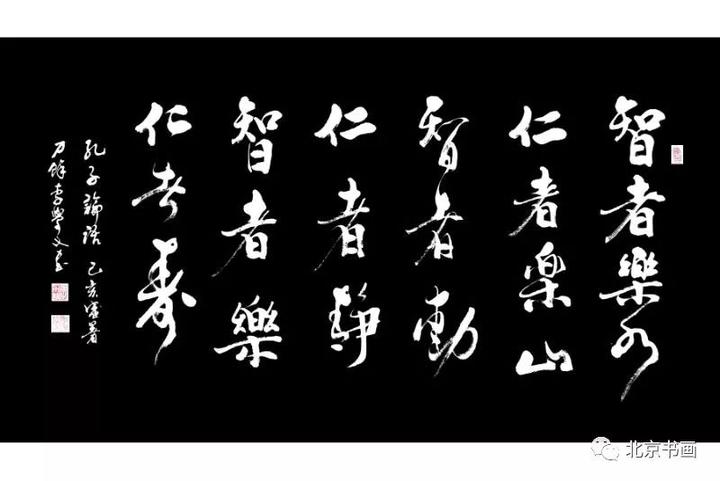 智者樂水
仁者樂山
智者動
仁者靜
智者樂
仁者壽
孔子論語 己亥盛暑
李學文
北京书画